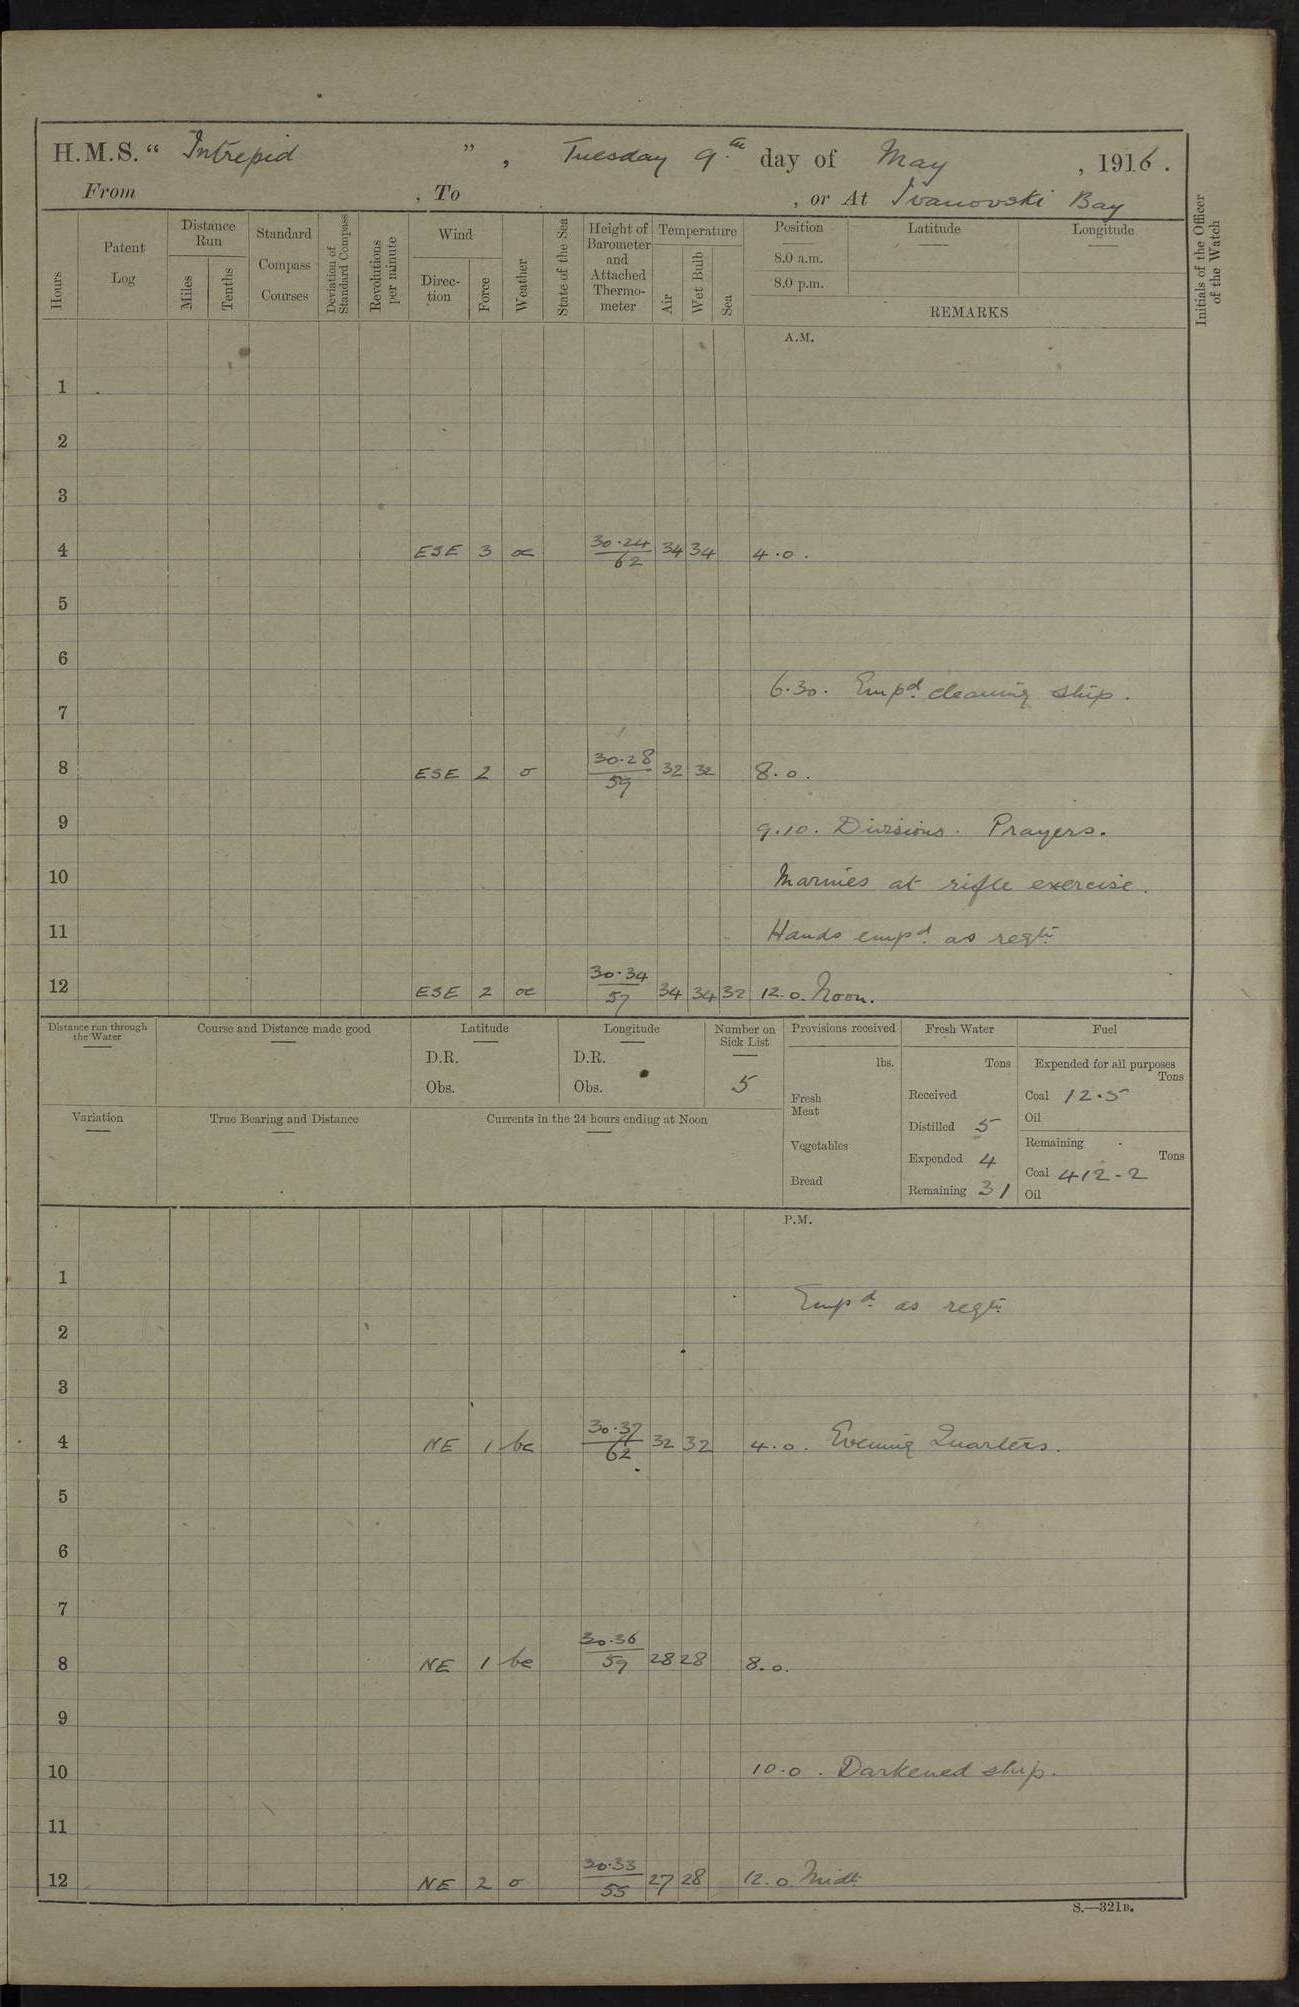 H.M.S. “ Intrepid ” , Tuesday 9th day of May , 1916.
From , To , or At Ivanovski Bay
Hours
Patent Log
Distance Run
Miles
Tenths
Standard Compass Courses
Deviation of Standard Compass
Revolutions per minute
Wind
Direc-tion
Force
Weather
State of the Sea
Height of Barometer and Attached Thermo-meter
Temperature
Air
Wet Bulb
Sea
Position
8.0 a.m.
8.0 p.m.
Latitude
Longitude
REMARKS
Initials of the Officer of the Watch
A.M.
1
2
3
4 ESE 3 oc 30.24 62 34 34 4.0.
5
6
6.30. Empd. cleaning ship.
7
8 ESE 2 o 30.28 59 32 32 8.0.
9 9.10. Divisions. Prayers.
10 Marines at rifle exercise.
11 Hands empd. as reqte.
12 ESE 2 oc 30.34 57 34 34 32 12.0. Noon.
Distance run through the Water
Course and Distance made good
Latitude
D.R.
Obs.
Longitude
D.R.
Obs.
Number on Sick List
5
Provisions received
lbs.
Fresh Meat
Vegetables
Bread
Fresh Water
Tons
Received
Distilled 5
Expended 4
Remaining 31
Fuel
Expended for all purposes
Tons
Coal 12.5
Oil
Remaining
Tons
Coal 412.2
Oil
Variation
True Bearing and Distance
Currents in the 24 hours ending at Noon
P.M.
1
Empd. as reqte.
2
3
4 NE 1 bc 30.37 62 32 32 4.0. Evening Quarters.
5
6
7
8 NE 1 bc 30.36 59 28 28 8.0.
9
10 10.0. Darkened ship.
11
12 NE 2 o 30.33 55 27 28 12.0. Midt.
S.—321B.